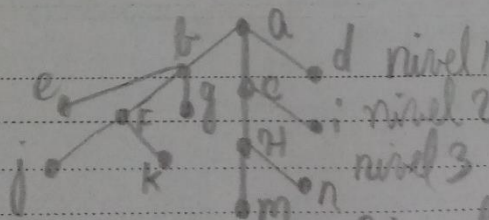 b a
d nivel 1
e g c
f i nivel 2
H nivel 3
j k n
m